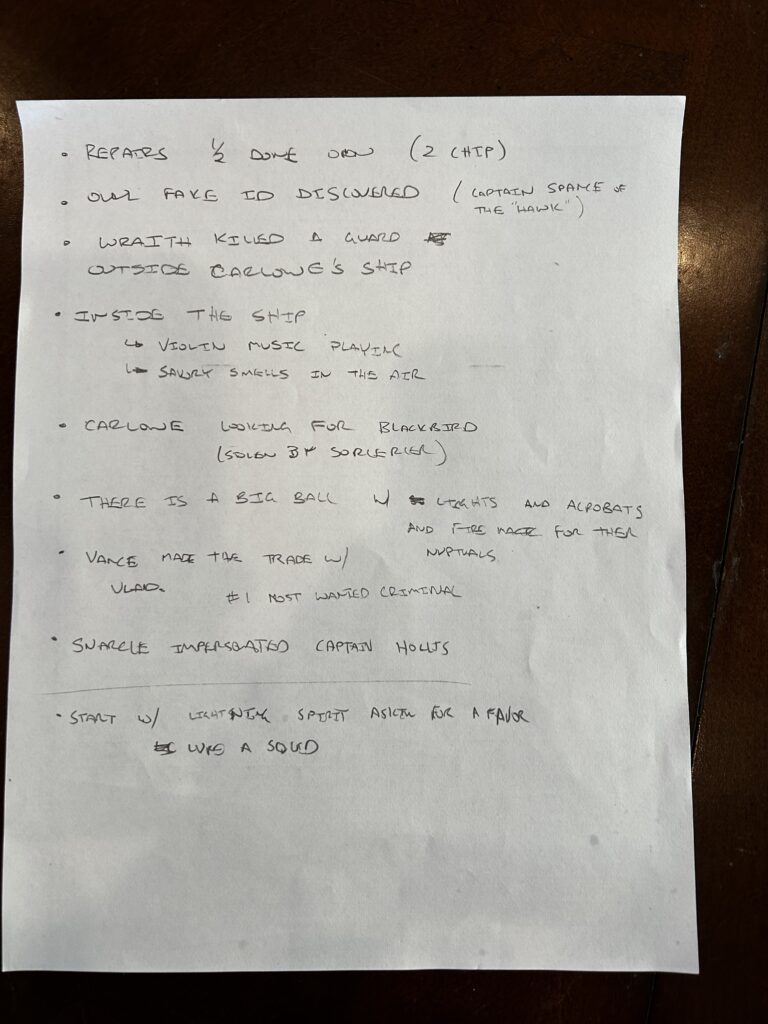 • REPAIRS 1/2 DONE (2 CHIP)
• OUR FAKE ID DISCOVERED (CAPTAIN SPANCE OF
THE "HAWK")
• WRAITH KILLED A GUARD
OUTSIDE CARLOWE'S SHIP
• INSIDE THE SHIP
↳ VIOLIN MUSIC PLAYING
↳ SAVORY SMELLS IN THE AIR
• CARLOWE LOOKING FOR BLACKBIRD
(SOLEN BY SORCERER)
• THERE IS A BIG BALL W/ LIGHTS AND ACROBATS
AND FIRE MAGIC FOR THER
NUPTUALS
• VANCE MADE THE TRADE W/
VLAD.
#1 MOST WANTED CRIMINAL
• SNARCLE IMPERSONATED CAPTAIN HOLLIS
• START W/ LIGHTNING SPIRIT ASKIN FOR A FAVOR
LIKE A SQUID